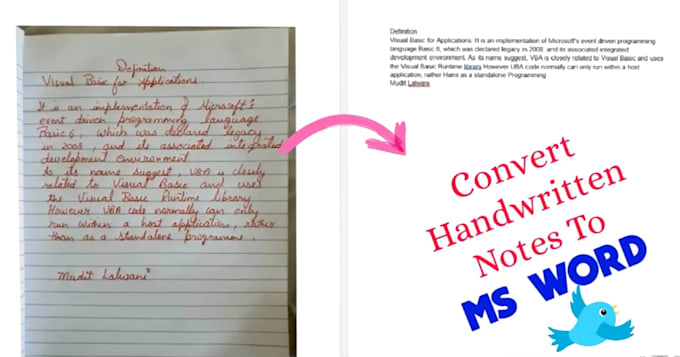 Definition
Visual Basic for Applications
It is an implementation of Microsoft's
event driven programming language
Basic 6, which was declared legacy
in 2008, and its associated integrated
development environment
As its name suggest, VBA is closely
related to Visual Basic and uses
the Visual Basic Runtime library
However VBA code normally can only
run within a host application, rather
than as a standalone programme.
Mudit Lalwani
Definition
Visual Basic for Applications. It is an implementation of Microsoft's event driven programming
language Basic 6, which was declared legacy in 2008. and its associated integrated
development environment. As its name suggest, VBA is closely related to Visual Basic and uses
the Visual Basic Runtime library However UBA code normally can only run within a host
application, rather Hans as a standalone Programming
Mudit Lalwani
Convert
Handwritten
Notes To
MS WORD